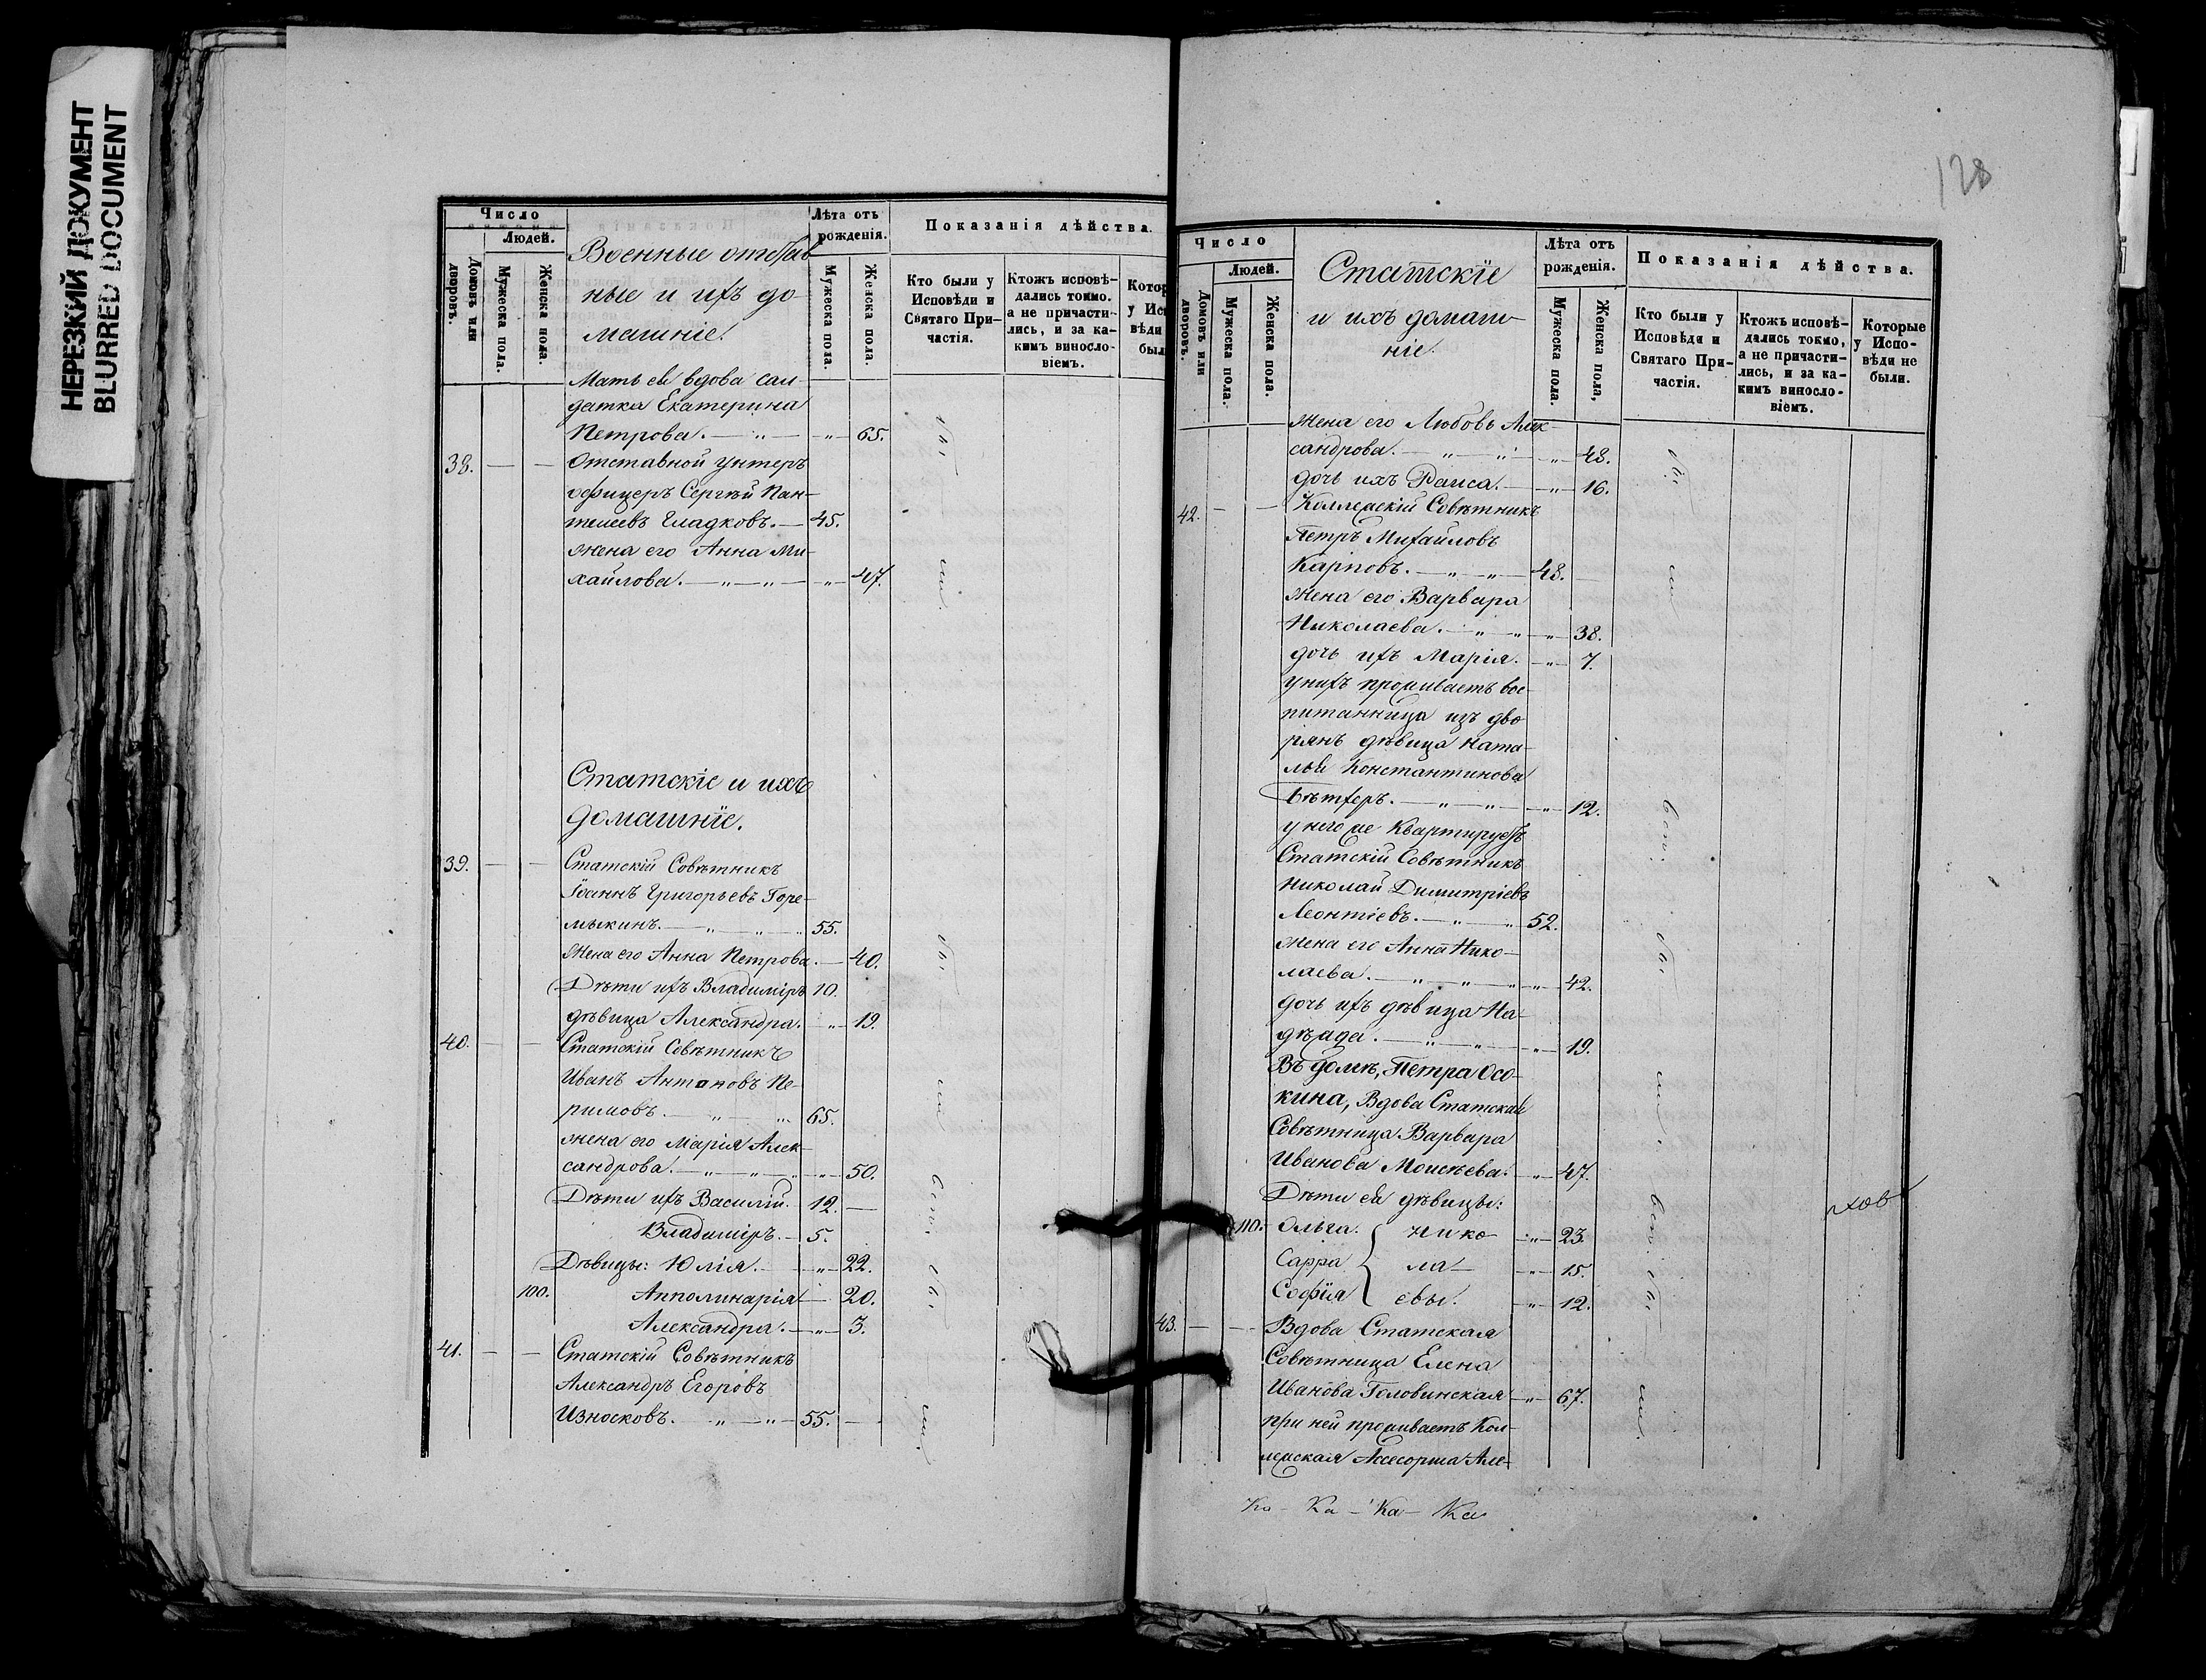 НЕРЕЗКИЙ ДОКУМЕНТ
BLURRED DOCUMENT
Число
Людей.
Домовъ или дворовъ.
Мужеска пола.
Женска пола.
Военные отстав
ные и ихъ до
машніе.
Лѣта отъ рожденія.
Мужеска пола.
Женска пола.
Показанія дѣйства.
Кто были у Исповѣди и Святаго При-
частія.
Ктожъ исповѣ-
дались токмо.
а не причасти-
лись, и за ка-
кимъ виносло-
віемъ.
Мать ея вдова сол-
датка Екатерина
Петрова. — „ — „ — 65.
38. — — Отставной унтеръ
офицеръ Сергѣй Пан-
телеевъ Гладковъ. — 45.
жена его Анна Ми-
хайлова. — „ — „ — „ — 47.
Статскіе и ихъ
домашніе.
39. — — Статскій Совѣтникъ
Іоаннъ Григорьевъ Горе-
мыкинъ. — „ „ „ 55.
Жена его Анна Петрова. — 40.
Дѣти ихъ Владиміръ 10.
дѣвица Александра. „ — 19.
40. — — Статскій Совѣтникъ
Иванъ Антоновъ Пе-
римовъ. — „ „ 65.
жена его Марія Алек-
сандрова. — „ — „ — „ — 50.
Дѣти ихъ Василій. 12. —
Владиміръ. — 5.
Дѣвицы: Юлія. — „ — 22.
100. Апполинарія — 20.
Александра. — „ — 3.
41. — — Статскій Совѣтникъ
Александръ Егоровъ
Износковъ. — „ — „ — 55. —
128
Число
Людей.
Домовъ или дворовъ.
Мужеска пола.
Женска пола.
Статскіе
и ихъ домаш-
ніе.
Лѣта отъ рожденія.
Мужеска пола.
Женска пола,
Показанія дѣйства.
Кто были у Исповѣди и Святаго При-
частія.
Ктожъ исповѣ-
дались токмо,
а не причасти-
лись, и за ка-
кимъ виносло-
віемъ.
Которые у Испо-
вѣди не были.
Жена его Любовь Алек-
сандрова. — „ — „ — „ — 48.
дочь ихъ Раиса. — „ — 16.
42. — — Коллежскій Совѣтникъ
Петръ Михайловъ
Карповъ. — „ — „ — 48. —
жена его Варвара
Николаева. — „ — „ — „ — 38.
дочь ихъ Марія. — „ — 7.
у нихъ проживаетъ вос-
питанница изъ дво-
рянъ дѣвица Ната-
лья Константинова
— „ — „ — „ — 12.
у него же квартируетъ
Статскій Совѣтникъ
Николай Димитріевъ
Леонтіевъ. — „ — „ 52.
жена его Анна Нико-
лаева. — „ — „ — „ — 42.
дочь ихъ дѣвица На-
дежда. — „ — „ — „ — 19.
Въ домѣ, Петра Осо-
кина, Вдова Статская
Совѣтница Варвара
Иванова Моисѣева. „ — 47.
Дѣти ея дѣвицы:
110. Ольга. Нико- „ — 23.
Сарра ла- „ — 15.
Софія евы. „ — 12.
43. — — Вдова Статская
Совѣтница Елена
Иванова Головинская „ — 67.
при ней проживаетъ Кол-
лежская Ассесорша Але-
Ка - Ка - Ка - Ка